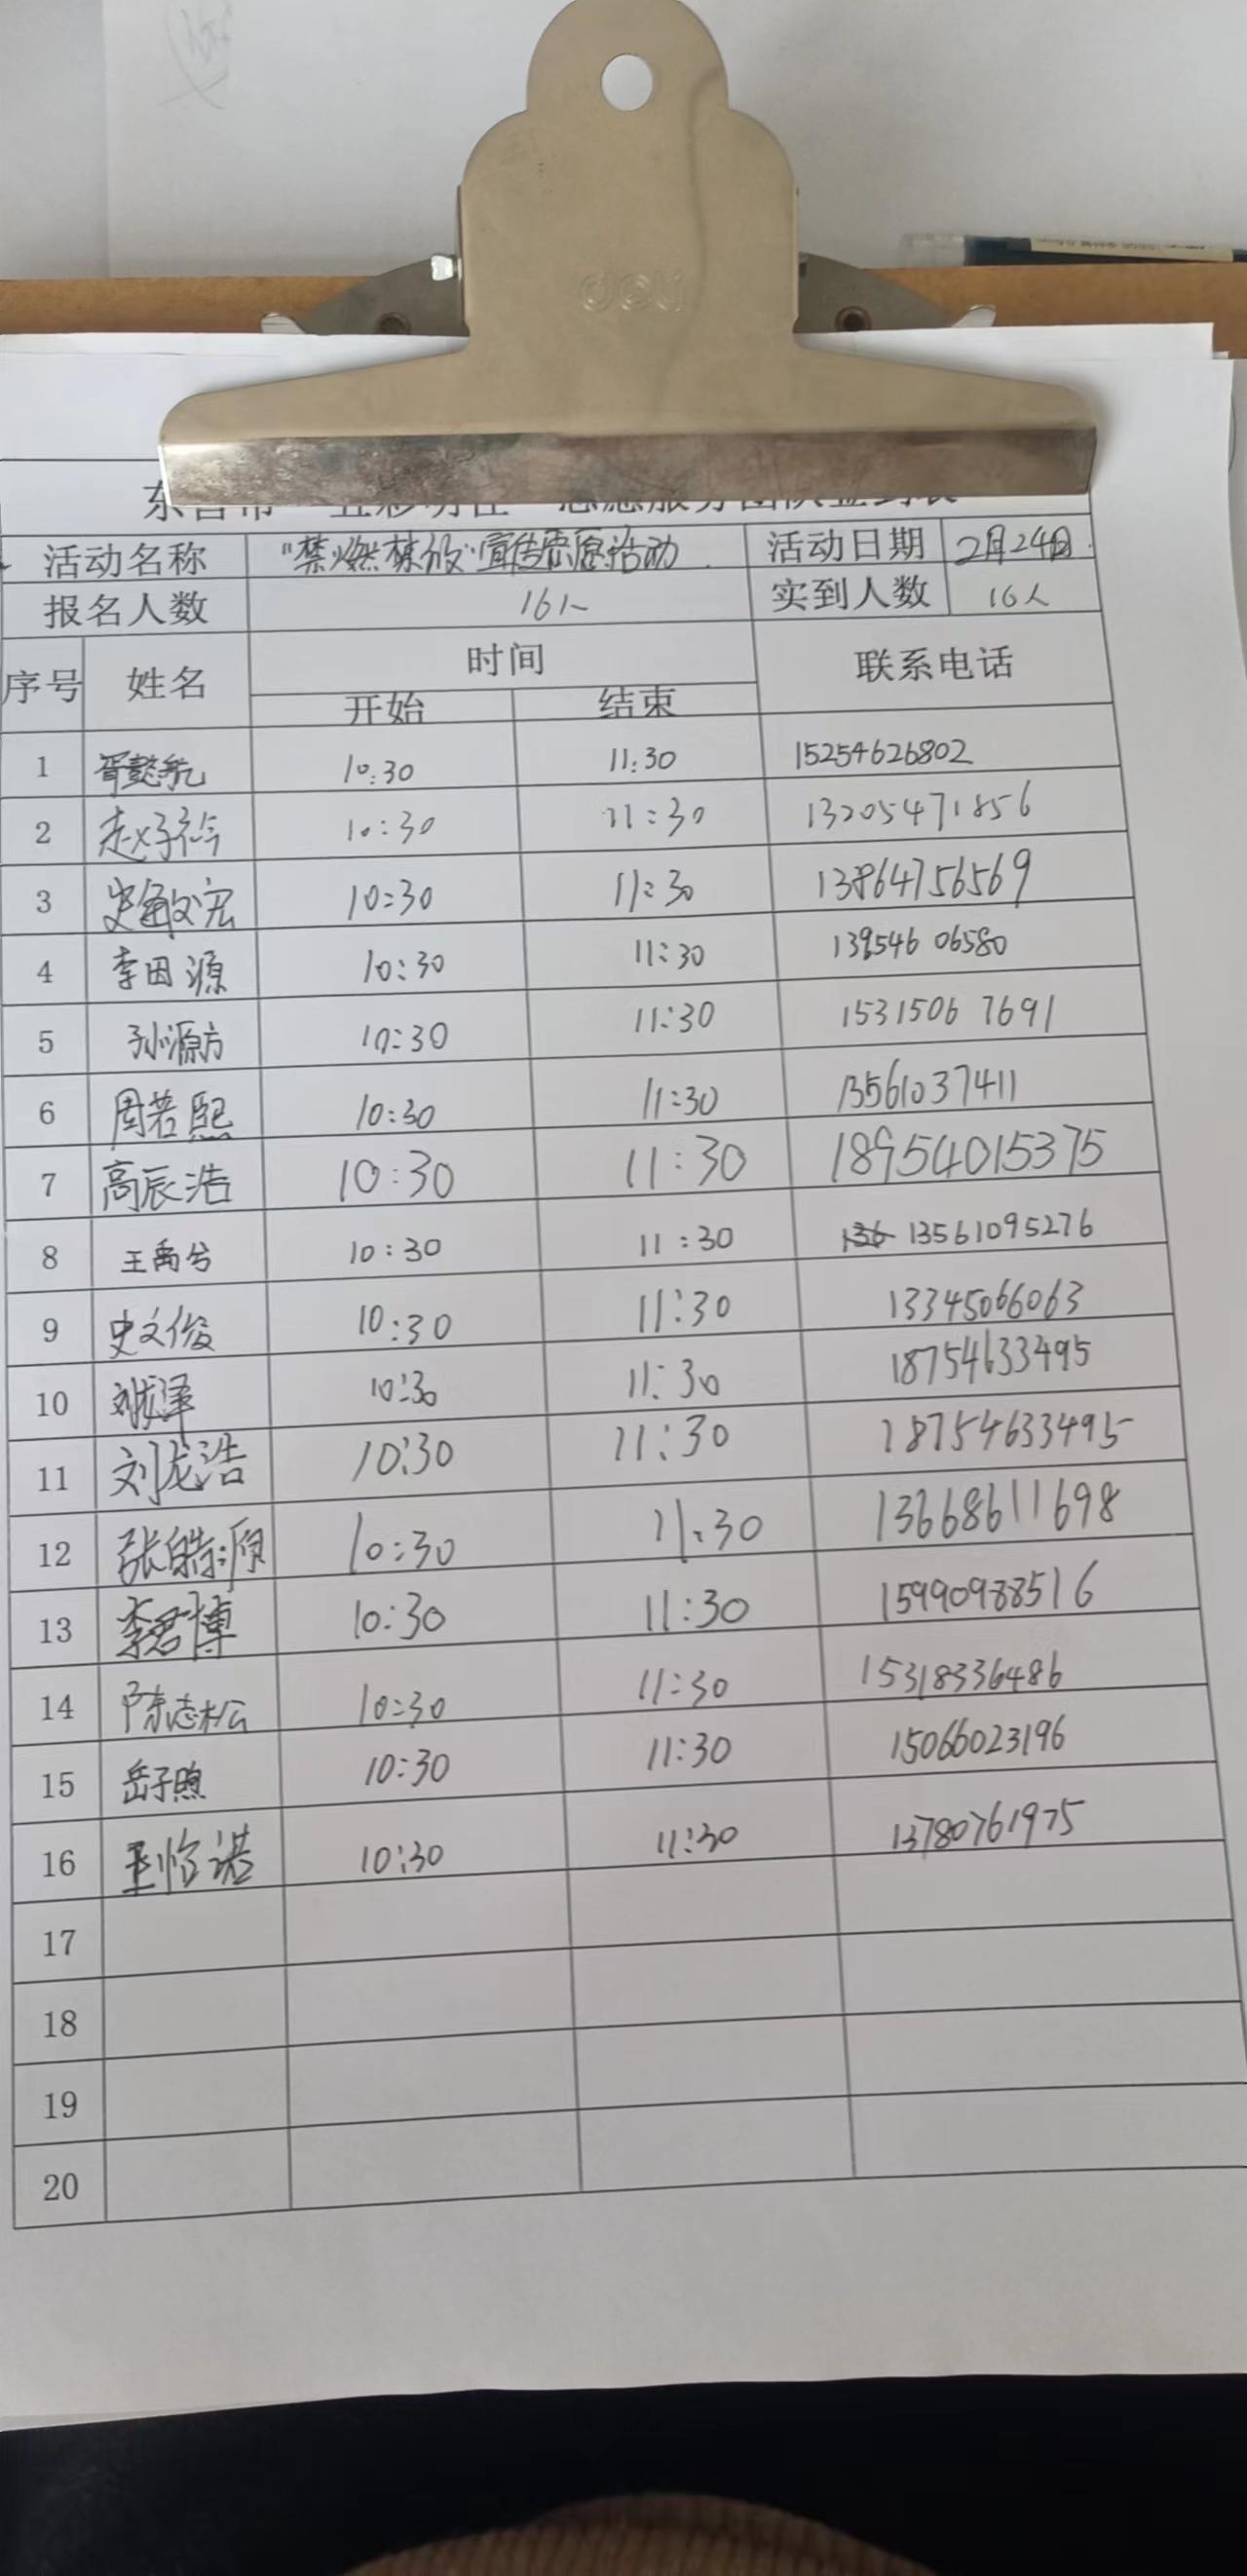 deli
活动名称 "禁燃禁放"宣传志愿活动 活动日期 2月24日
报名人数 16人 实到人数 16人
序号 姓名 时间 联系电话
开始 结束
1 胥懿航 10:30 11:30 15254626802
2 赵子衿 10:30 11:30 13205471856
3 史 宏 10:30 11:30 13864756569
4 李田源 10:30 11:30 139546 06580
5 孙源方 10:30 11:30 1531506 7691
6 周若熙 10:30 11:30 13561037411
7 高辰浩 10:30 11:30 18954015375
8 王禹兮 10:30 11:30 136 13561095276
9 史文俊 10:30 11:30 13345066063
10 刘龙泽 10:30 11:30 18754633495
11 刘龙浩 10:30 11:30 18754633495
12 张皓源 10:30 11:30 13668611698
13 李君博 10:30 11:30 15990988516
14 陈志松 10:30 11:30 15318336486
15 岳子煦 10:30 11:30 15066023196
16 王怡诺 10:30 11:30 13780761975
17
18
19
20